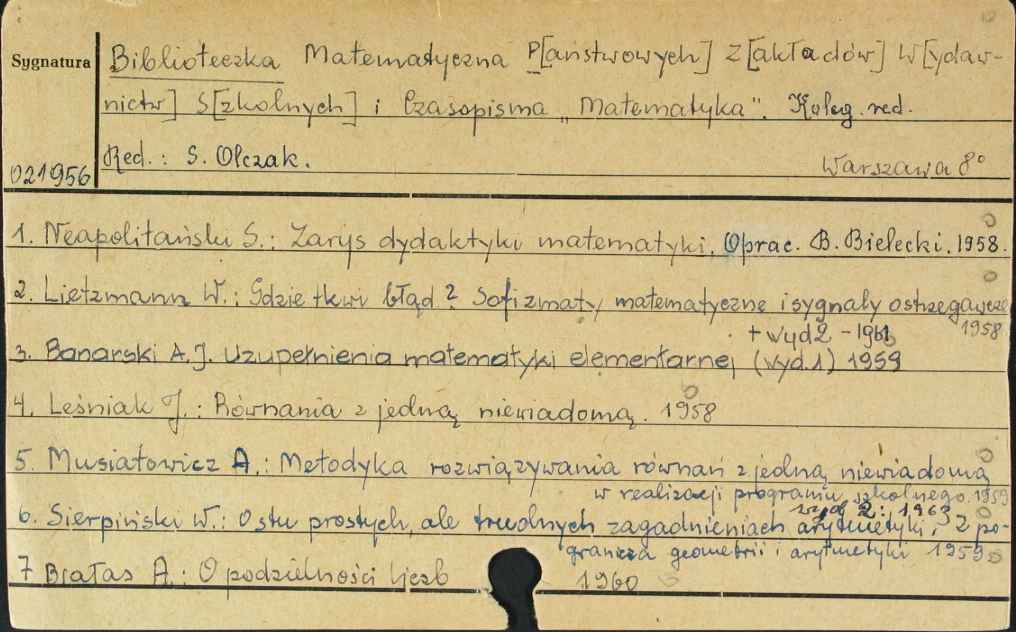 Sygnatura
Biblioteczka Matematyczna P[aństwowych] Z[akładów] W[ydaw-
nictw] S[zkolnych] i Czasopisma „Matematyka". Koleg. red.
Red.: S. Olczak.
021956
Warszawa 8°
1. Neapolitański S.: Zarys dydaktyki matematyki. Oprac. B. Bielecki. 1958.
2. Lietzmann W.: Gdzie tkwi błąd? Sofizmaty matematyczne i sygnały ostrzegawcze
1958
+ wyd 2 - 1961
3. Banarski A.J. Uzupełnienia matematyki elementarnej (wyd.1) 1959
4. Leśniak J.: Równania z jedną niewiadomą. 1958
5. Musiałowicz A.: Metodyka rozwiązywania równań z jedną niewiadomą
w realizacji programu szkolnego. 1959
wyd 2: 1963
6. Sierpiński W.: O stu prostych, ale trudnych zagadnieniach arytmetyki. Z po-
granicza geometrii i arytmetyki 1959
7 Białas A.: O podzielności liczb 1960